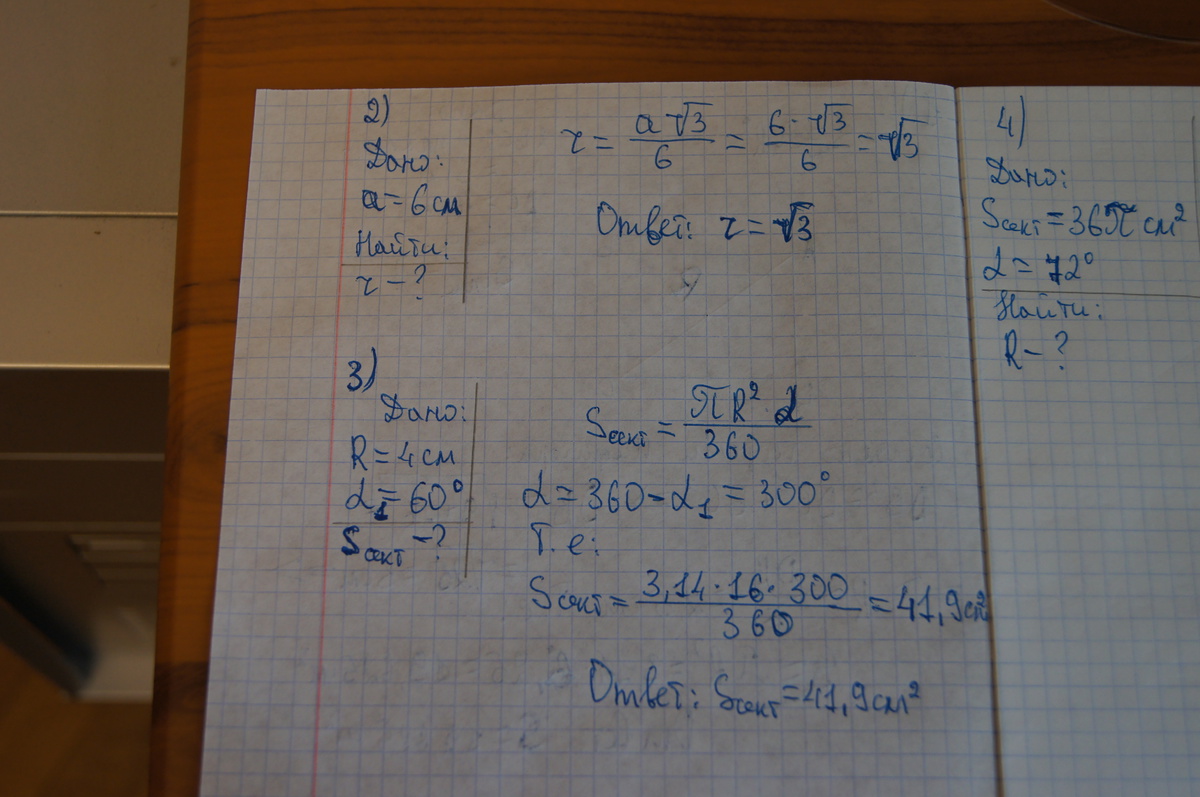 2)
Дано:
a = 6 см
Найти:
r - ?
r = a√3/6 = 6·√3/6 = √3
Ответ: r = √3
3)
Дано:
R = 4 см
α₁ = 60°
Sсект - ?
Sсект = πR²·α/360
α = 360 - α₁ = 300°
Т.е:
Sсект = 3,14·16·300/360 = 41,9 см²
Ответ: Sсект = 41,9 см²
4)
Дано:
Sсект = 36π см²
α = 72°
Найти:
R - ?